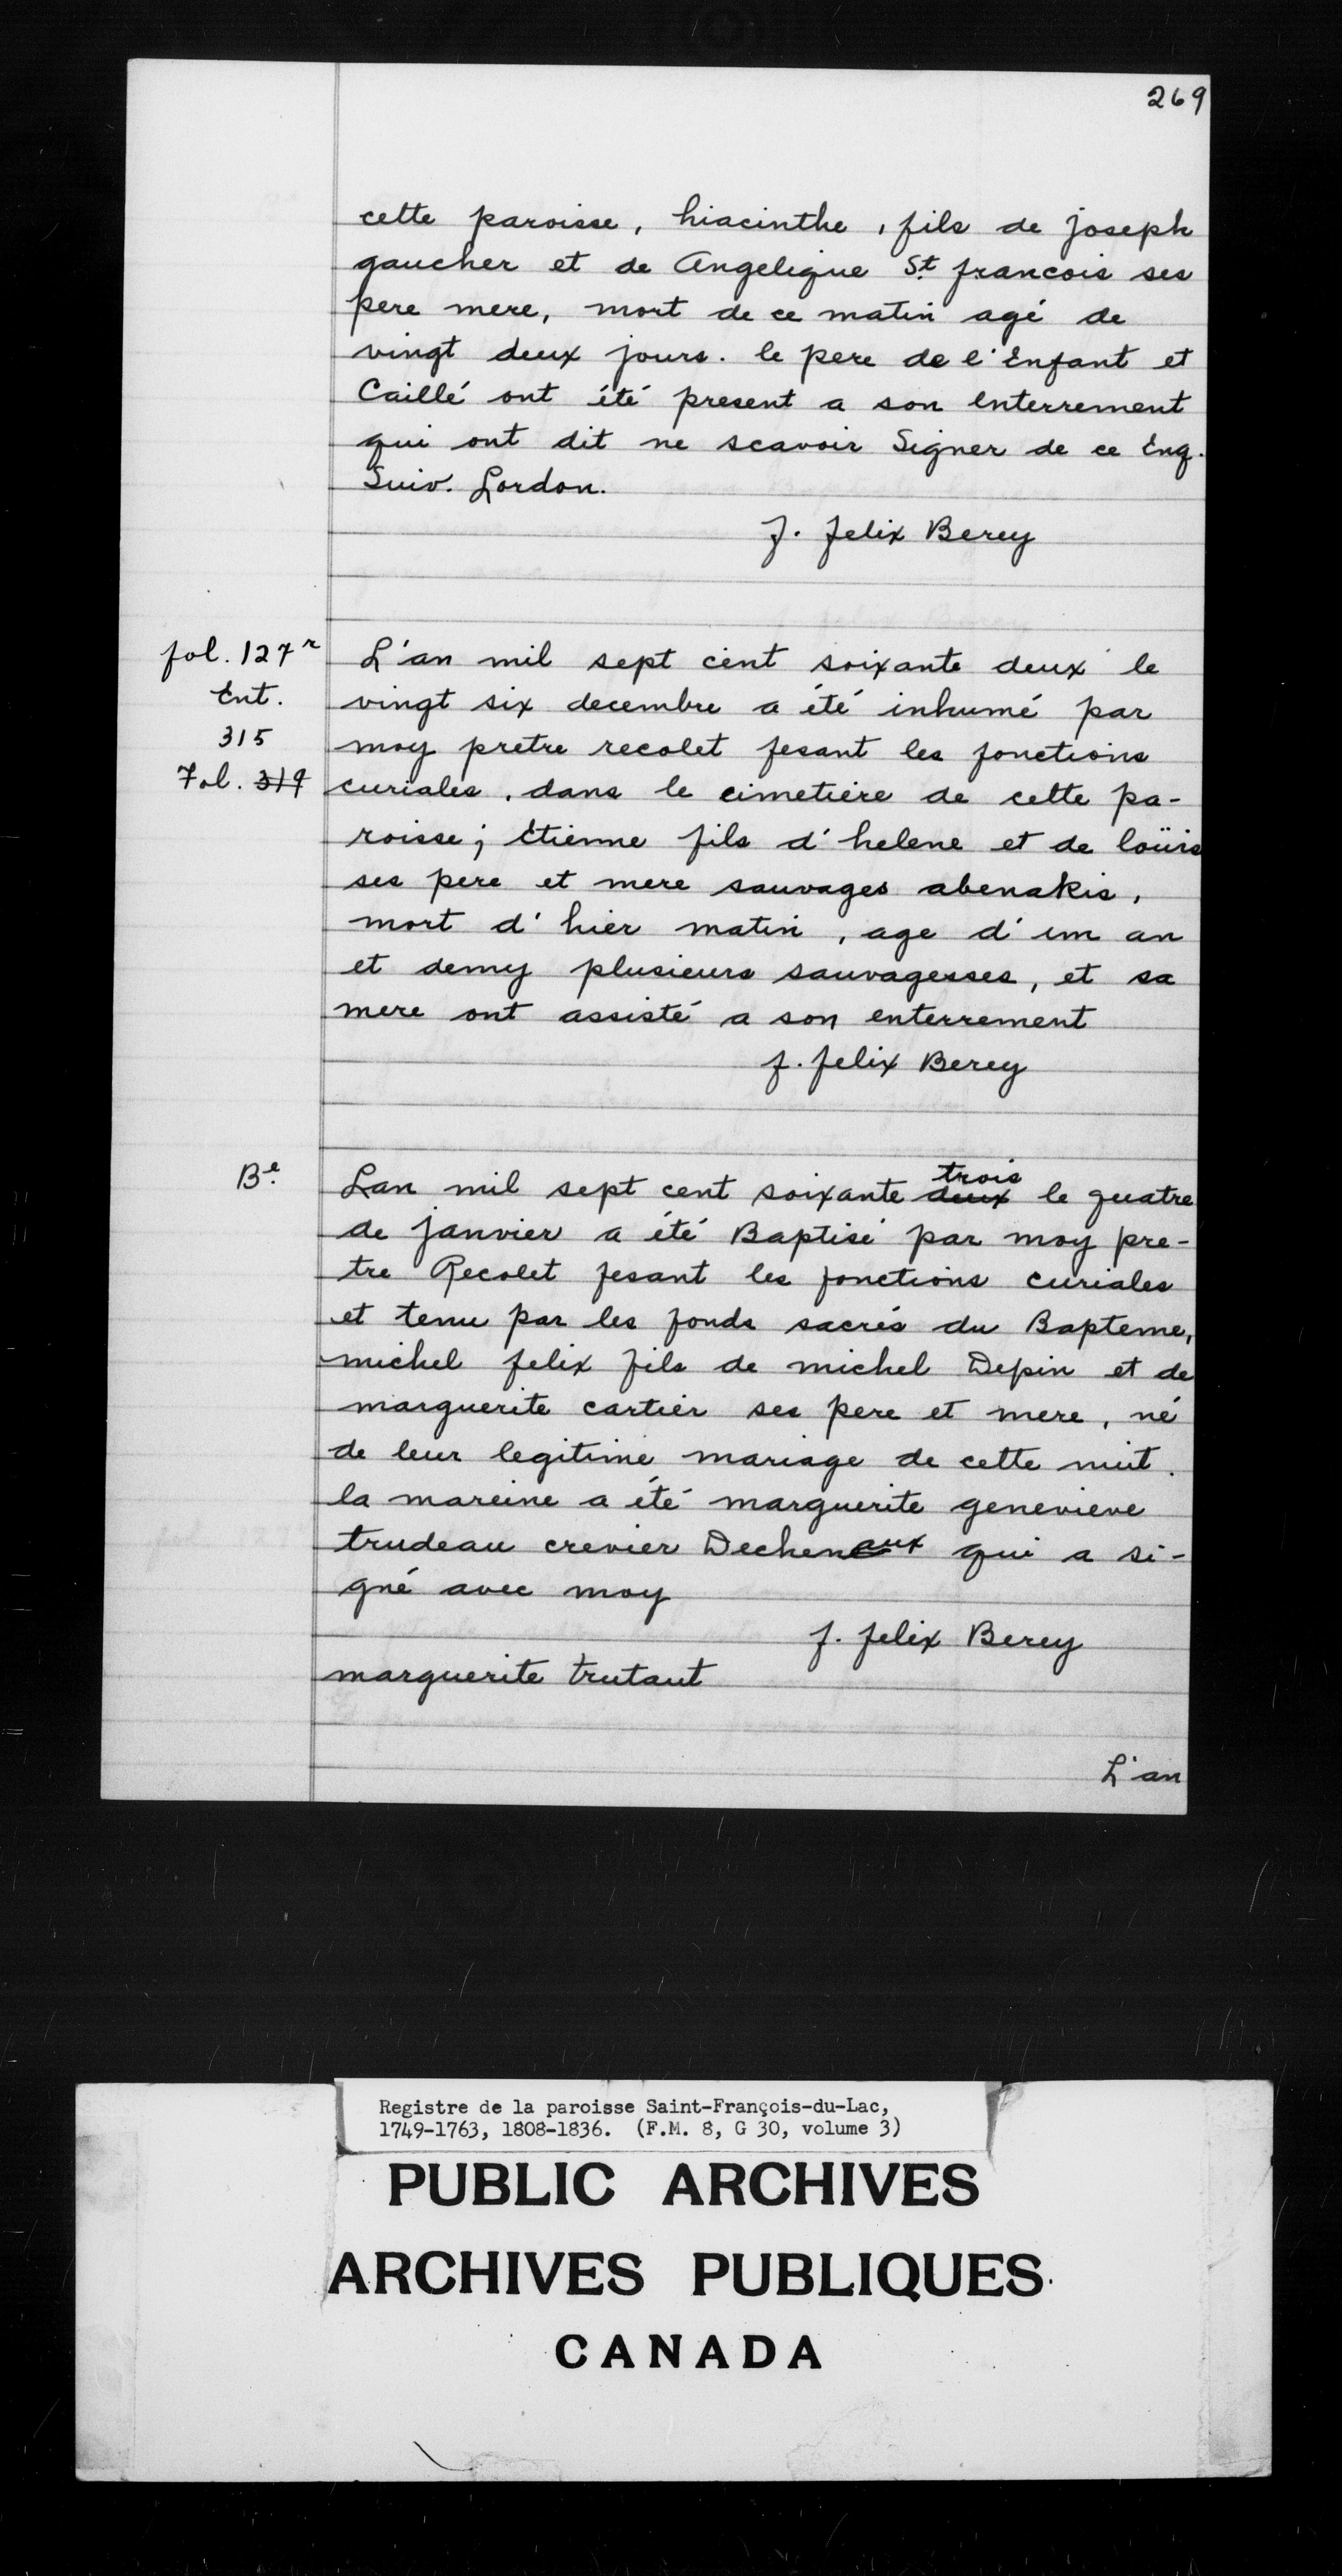 269
cette paroisse, hiacinthe, fils de joseph
gaucher et de Angelique St. francois ses
pere mere, mort de ce matin agé de
vingt deux jours. le pere de l'Enfant et
Caillé ont été present a son enterrement
qui ont dit ne scavoir Signer de ce Enq.
Suiv. Lordon.
f. felix Berey
fol. 127r
Ent.
315
Fol. 319
L'an mil sept cent soixante deux le
vingt six decembre a été inhumé par
moy pretre recolet fesant les fonctions
curiales. dans le cimetiere de cette pa-
roisse; Etienne fils d'helene et de loüis
ses pere et mere sauvages abenakis,
mort d'hier matin, age d'un an
et demy plusieurs sauvagesses, et sa
mere ont assisté a son enterrement
f. felix Berey
Be.
Lan mil sept cent soixante deux trois le quatre
de janvier a été Baptisé par moy pre-
tre Recolet fesant les fonctions curiales
et tenu par les fonds sacrés du Bapteme,
michel felix fils de michel Depin et de
marguerite cartier ses pere et mere, né
de leur legitime mariage de cette nuit.
la mareine a été marguerite genevieve
trudeau crevier Decheneaux qui a si-
gné avec moy
f. felix Berey
marguerite trutaut
L'an
Registre de la paroisse Saint-François-du-Lac,
1749-1763, 1808-1836. (F.M. 8, G 30, volume 3)
PUBLIC ARCHIVES
ARCHIVES PUBLIQUES
CANADA